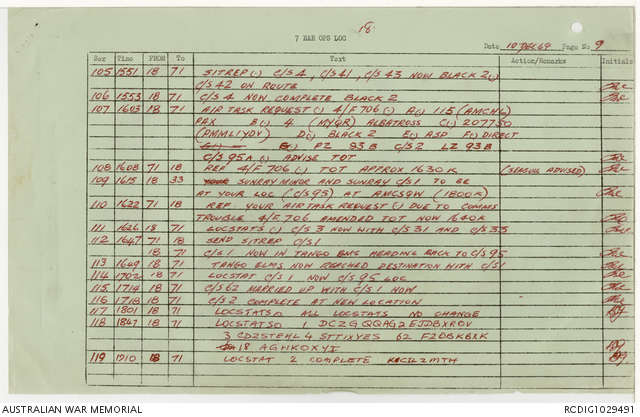 18
7 RAR OPS LOG
Date 10 DEC 69 Page No 9
Ser Time FROM To Text Action/Remarks Initials
105 1551 18 71 SITREP(.) C/S 4, C/S 41, C/S 43 NOW BLACK 2(.)
C/S 42 ON ROUTE
106 1553 18 71 C/S 4 NOW COMPLETE BLACK 2
107 1603 18 71 AIR TASK REQUEST(.) 4/F 706(.) A(.) 115
PAX B(.) 4 (MYQR) ALBATROSS C(.) 207730
D(.) BLACK 2 E(.) ASP F(.) DIRECT
PZ 93B C/S 2 LZ 93B
C/S 95A(.) ADVISE TOT
108 1608 71 18 REF 4/F 706(.) TOT APPROX 1630K (SEAGULL ADVISED)
109 1615 18 33 SUNRAY MINOR AND SUNRAY C/S 1 TO BE
AT YOUR LOC (C/S 95) AT AMCSGW (1800K)
110 1622 71 18 REF YOUR AIR TASK REQUEST(.) DUE TO COMMS
TROUBLE 4/F 706 AMENDED TOT NOW 1640K
111 1626 18 71 LOCSTATS(.) C/S 3 NOW WITH C/S 31 AND C/S 33
112 1647 71 18 SEND SITREP C/S 1
18 71 C/S 1 NOW IN TANGO BMS HEADING BACK TO C/S 95
113 1649 18 71 TANGO ELMS NOW REACHED DESTINATION WITH C/S 1
114 1702 18 71 LOCSTAT C/S 1 NOW C/S 95 LOC
115 1714 18 71 C/S 62 MARRIED UP WITH C/S 1 NOW
116 1718 18 71 C/S 2 COMPLETE AT NEW LOCATION
117 1801 18 71 LOCSTATS ALL LOCSTATS NO CHANGE
118 1847 18 71 LOCSTATS 1 DCZGQQAG 2 EJDBXROV
3 CDZSTEHL 4 STTIXYES 62 F2DBKBXK
18 AGHKOXYI
119 1910 18 71 LOCSTAT 2 COMPLETE
AUSTRALIAN WAR MEMORIAL
RCDIG1029491